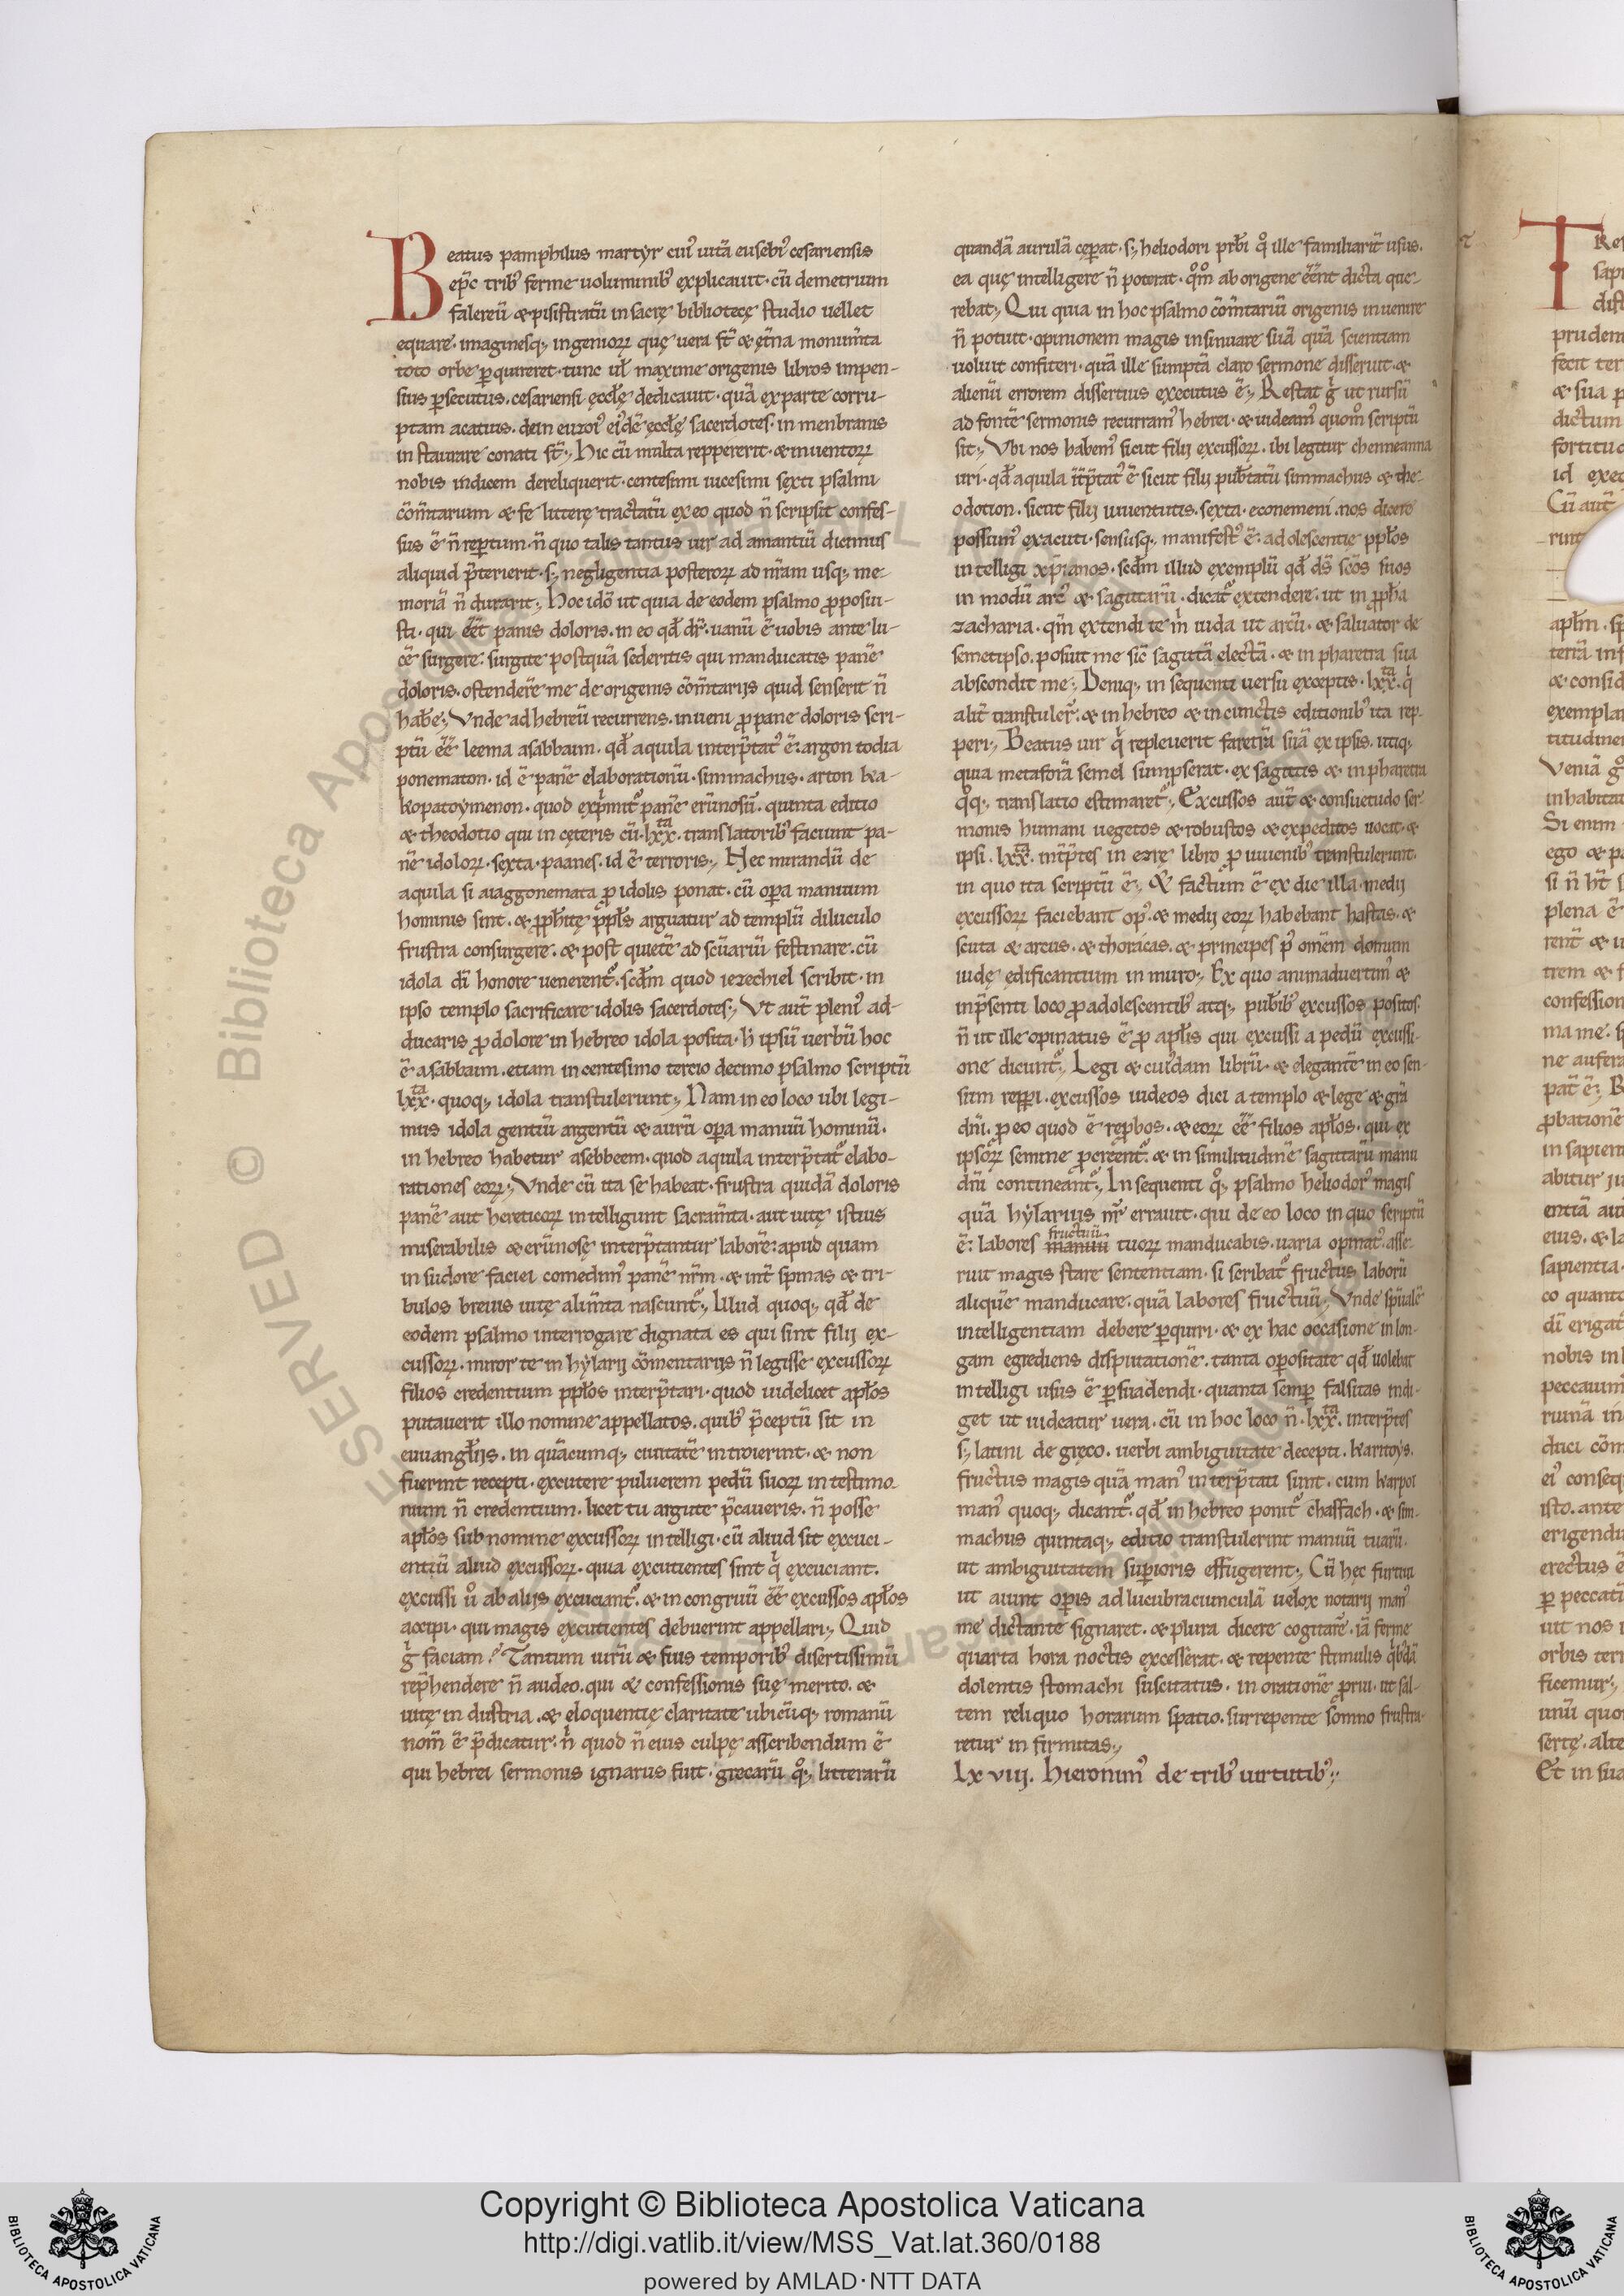 Beatus pamphilus martyr cuiꝰ uitā eusebiꝰ cesariensis
ep̄c tribꝰ ferme uoluminibꝰ explicauit · cū demetrium
falereū & pisistratū in sacrę bibliotecę studio uellet
equare · imaginesq; ingeniorꝝ quę uera st̄ & ęt̄na monum̄ta
toto orbe ꝑquireret · tunc ul̄ maxime origenis libros impen-
sius ꝑsecutus · cesariensi ęccl̄ę dedicauit · quā ex parte corru-
ptam acatius · dein euzoiꝰ eiꝰdē ęccl̄ę sacerdotes · in menbranis
instaurare conati st̄; Hic cū multa reppererit · & inuentorꝝ
nobis indicem dereliquerit · centesimi uicesimi sexti psalmi
cōm̄tarium & fe litterę tractatū ex eo quod n̄ scripsit confes-
sus ē n̄ reꝑtum · n̄ quo talis tantus uir adamantiū dicimus
aliquid p̄terierit · s; negligentia posterorꝝ ad nr̄am usq; me-
moriā n̄ durarit; Hoc idō ut quia de eodem psalmo ꝓposui-
sti · qui ēēt panis doloris · in eo qd̄ dr̄ · uanū ē uobis ante lu-
cē surgere : surgite postquā sederitis qui manducatis panē
doloris · ostenderē me de origenis cōm̄tarijs quid senserit n̄
habē; Vnde ad hebreū recurrens · inueni ꝓ pane doloris scri-
ptū ēē leema asabbaim · qd̄ aquila interp̄tatꝰ ē : argon todia
ponematon · id ē panē elaborationū · simmachus · arton ka-
kopatoymenon · quod exp̄mit᷑ panē erūnosū · quinta editio
& theodotio qui in cęteris cū · lxx͞ta · translatoribꝰ faciunt pa-
nē idolorꝝ · sexta · paanes · id ē terroris; Nec mirandū de
aquila si aiaggonemata ꝓ idolis ponat · cū oꝑa manuum
hominis sint · & ꝓph̄itę ꝓpl̄s arguatur ad templū diluculo
frustra consurgere · & post quietē ad scūarıū festinare · cū
idola dī honore uenerent᷑ · scd̄m quod iezechiel scribit · in
ipso templo sacrificare idolis sacerdotes; Vt aut̄ pleniꝰ ad-
ducaris ꝓ dolore in hebreo idola posita · h̄ ipsū uerbū hoc
ē asabbaim · etiam in centesimo tercio decimo psalmo scriptū
lxx͞ta · quoq; idola transtulerunt; Nam in eo loco ubi legi-
mus idola gentiū argentū & aurū oꝑa manuū hominū ·
in hebreo habetur asebbeem · quod aquila interp̄tat᷑ elabo-
rationes eorꝝ; Vnde cū ita se habeat · frustra quidā doloris
panē aut hereticorꝝ intelligunt sacram̄ta · aut uitę istius
miserabilis & erūnosę interp̄tantur laborē : apud quam
in sudore faciei comedimꝰ panē nr̄m · & int̄ spinas & tri-
bulos breuis uitę alim̄ta nascunt᷑; Illud quoq; qd̄ de
eodem psalmo interrogare dignata es qui sint filij ex-
cussorꝝ · miror te in hylarij cōmentarijs n̄ legisse excussorꝝ
filios credentium ppl̄os interp̄tari · quod uidelicet apl̄os
putauerit illo nomine appellatos · quibꝰ p̄ceptū sit in
euuangl̄ijs · in quācumq; ciuitatē introierint · & non
fuerint recepti · excutere puluerem pedū suorꝝ in testimo-
nium n̄ credentium · licet tu argute p̄caueris · n̄ posse
apl̄os sub nomine excussorꝝ intelligi · cū aliud sit excuci-
entiū aliud excussorꝝ · quia excutientes sint q̇ excuciant ·
excussi u̇ ab alijs excuciant᷑ · & incongruū ēē excussos apl̄os
accipi · qui magis excutientes debuerint appellari; Quid
g̊ faciam? Tantum uirū & suis temporibꝰ disertissimū
rep̄hendere n̄ audeo · qui & confessionis suę merito · &
uitę industria · & eloquentię claritate ubicūq; romanū
nom̄ ē p̄dicatur · n̊ quod n̄ eius culpę asscribendum ē
qui hebrei sermonis ignarus fuit · grecarū qͦ; litterarū
quandā aurulā ceꝑat · s; heliodori prb̄i qͦ ille familiarit̄ usus ·
ea quę intelligere n̄ poterat · qͦmͦ ab origene ēēnt dicta que-
rebat; Qui quia in hoc psalmo cōm̄tariū origenis inuenire
n̄ potuit · opinionem magis insinuare suā quā scientiam
uoluit confiteri · quā ille sumptā claro sermone disseruit · &
alienū errorem dissertius executus ē; Restat g̊ ut rursū
ad fontē sermonis recurramꝰ hebrei · & uideamꝰ quomͦ scriptū
sit; Vbi nos habemꝰ sicut filij excussorꝝ · ibi legitur chenneanna
uri · qd̄ aquila it̄p̄tatꝰ ē sicut filij pub̄tatū simmachus & the-
odotion · sicut filij iuuentutis · sexta · econemeni · nos dicere
possumꝰ exacuti · sensusq; manifestꝰ ē : adolescentie ppl̄os
intelligi xp̄ianos · scd̄m illud exemplū qd̄ ds̄ sc̄os suos
in modū arcꝰ & sagittarū · dicat᷑ extendere : ut in ꝓph̄a
zacharia · qm̄ extendi te m̊ iuda ut arcū · & saluator de
semetipso · posuit me sic̄ sagittā electā · & in pharetra sua
abscondit me; Deniq; in sequenti uersu exceptis · lxx͞ta · q̊
alit̄ transtuler̄ · & in hebreo & in cunctis editionibꝰ ita rep-
peri; Beatus uir q̊ repleuerit faretrā suā ex ipsis · utiq;
quia metaforā semel sumpserat · ex sagittis & in pharetra
qͦq; translatio estimaret᷑; Excussos aut̄ & consuetudo ser-
monis humani uegetos & robustos & expeditos uocat · &
ipsi · lxx͞ta · int̄p̄tes in ezrę libro ꝓ iuuenibꝰ transtulerunt ·
in quo ita scriptū ē; & factum ē ex die illa · medij
excussorꝝ faciebant opꝰ · & medij eorꝝ habebant hastas · &
scuta & arcus · & thoracas · & principes pꝰ omēm domum
iudę edificantium in muro; Ex quo animaduertimꝰ &
in p̄senti loco ꝓ adolescentibꝰ atq; pub̄ibꝰ excussos positos
n̄ ut ille opinatus ē ꝓ apl̄is qui excussi a pedū excussi-
one dicunt᷑; Legi & cuiꝰdam librū · & elegantē in eo sen-
sum repꝑi · excussos iudeos dici a templo & lege & gr̄a
dn̄i · ꝓ eo quod ē rep̄bos · & eorꝝ ēē filios apl̄os · qui ex
ipsorꝝ semine ꝓcreent᷑ · & in similitudinē sagittarū manu
dn̄i contineant᷑; In sequenti qͦ; psalmo heliodorꝰ magis
quā hylarius nr̄ errauit · qui de eo loco in quo scriptū
ē : labores manuū fructuū tuorꝝ manducabis · uaria opinatꝰ · asse-
ruit magis stare sententiam · si scribat᷑ fructus laborū
aliquē manducare · quā labores fructuū; Vnde sp̄ualē
intelligentiam debere ꝑquiri · & ex hac occasione in lon-
gam egrediens disputationē · tanta oꝑositate qd̄ uolebat
intelligi usus ē ꝑsuadendi · quanta semꝑ falsitas indi-
get ut uideatur uera · cū in hoc loco n̄ · lxx͞ta · interp̄tes
s; latini de gręco · uerbi ambiguitate decepti · karpoys ·
fructus magis quā manꝰ interp̄tati sunt · cum karpoi
manꝰ quoq; dicant᷑ · qd̄ in hebreo ponit᷑ chaffach · & sim-
machus quintaq; editio transtulerint manuū tuarū ·
ut ambiguitatem suꝑioris effugerent; Cū hęc furtim
ut aiunt oꝑis ad lucubraciunculā uelox notarij manꝰ
me dictante signaret · & plura dicere cogitarē · iā ferme
quarta hora noctis excesserat · & repente stimulis q̊bꝰdā
dolentis stomachi suscitatus · in orationē ꝓrui · ut sal-
tem reliquo horarum spatio · surrepente somno frustra-
retur infirmitas;
lxviij. hieronimꝰ de tribꝰ uirtutibꝰ;
Copyright © Biblioteca Apostolica Vaticana
http://digi.vatlib.it/view/MSS_Vat.lat.360/0188
powered by AMLAD·NTT DATA
BIBLIOTECA APOSTOLICA VATICANA
BIBLIOTECA APOSTOLICA VATICANA